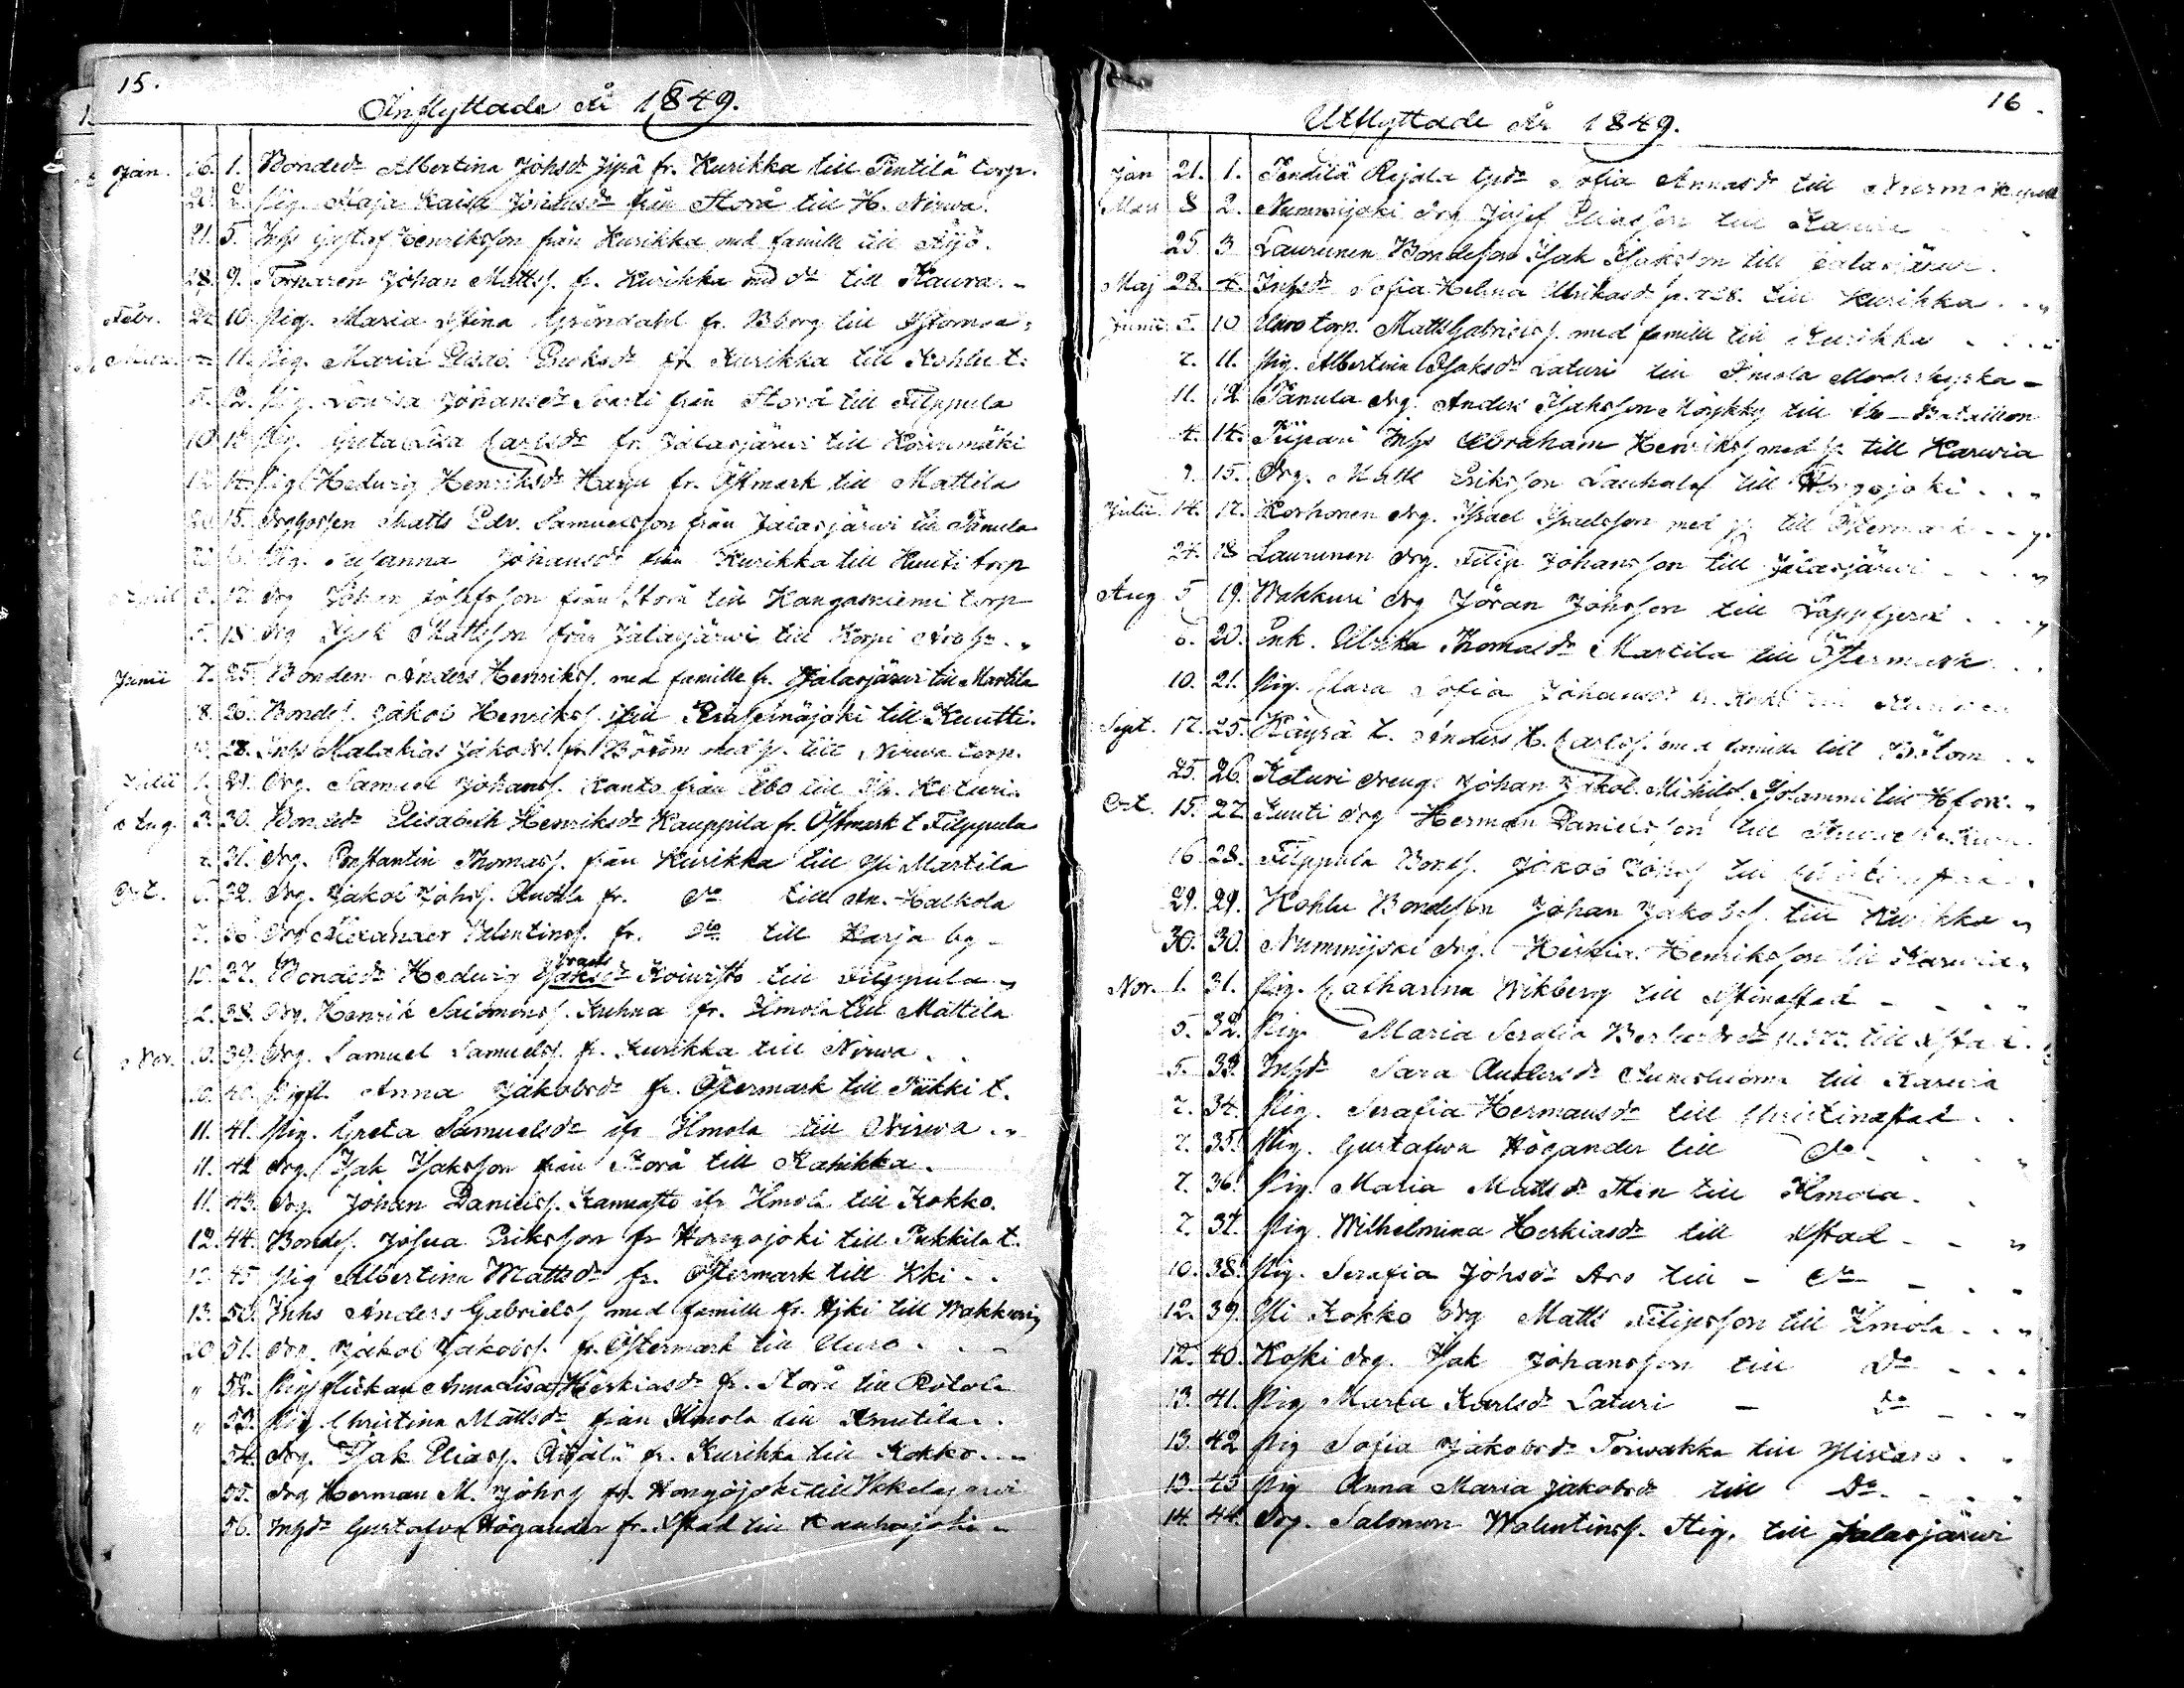 15.
Inflyttade År 1849.
Jan. 16. 1. Bonded:r Albertina Johsd:r fr. Kurikka till Pentilä torp.
21. 2. Pig. Maja Kaisa från Storå till N. Nirwa.
21. 5. Inhs Gustaf Henriksson från Kurikka med famille till Äijö.
28. 9. Torparen Johan Mattss. fr. Kurikka med d:o till Kaura.
Febr. 22. 10. Pig. Maria Stina Gröndahl fr. Bborg till
Mars. 11. Pig. Maria fr. Kurikka till Kohlu t.
5. 12. Pig. Lovisa Johansd:r från Storå till Filppula
10. 13. Pig. Greta Lisa Carlsd:r fr. Jalasjärwi till Korinmäki
12. 14. Pig. Hedwig Henriksd:r Harju fr. Östmark till Mattila
20. 15. Matts Edv. Samuelsson från Jalasjärwi till Pänula
16. Pig. Susanna Johansd:r från Kurikka till Kuuti torp
April 17. Drg Johan Josefsson från Storå till Kangasniemi torp
5. 18. Drg Isak Mattsson från Jalasjärwi till Korpi
Junii 7. 25. Bonden Anders Henrikss. med famille fr. Jalasjärwi till Martila
8. 26. Bondes. Jakob Henrikss. till Kuutti.
28. Inhs Malakias Jakobss. fr. Böröm med h. till Nirwa torp.
Julii 1. 29. Drg. Samuel Johanss. Kanto från Åbo till Keturi
Aug. 3. 30. Bonded:r Elisabeth Henriksd:r Kauppila fr. Östmark t. Filppula
31. Drg. Constantin Thomass. från Kurikka till Yli Martila
Oct. 6. 32. Drg. Jakob Johss. fr. d:o till Halkola
7. 36. Drg Alexander Valentinss. fr. d:o till Harja by
12. 37. Bonded:r Hedwig Isaksd:r Koiwisto till Filppula
38. Drg. Henrik Saidmons. Kuhna fr. Ilmola till Mattila
Nov. 39. Drg. Samuel Samuelss. fr. Kurikka till Nirwa
10. 40. Pigfl. Anna Jakobsd:r fr. Östermark till Pukki t.
11. 41. Pig. Greta Samuelsd:r ifr Ilmola till Nirwa
11. 42 Drg. Isak Isaksson från Storå till Rahikka.
11. 43. Drg. Johan Danielss. Kamasto ifr Ilmola till Kokko.
12. 44. Bondes. Josua Eriksson fr Hongojoki till Pukkila t.
12. 45. Pig Albertina Mattsd:r fr. Östermark till Kki
13. 50. Inhs Anders Gabrielss. med famille fr. Hjki till Wakkuri
20 51. Drg. Jakob Jakobss. fr. Östermark till Uuro
" 52. Pigflickan Anna Lisa Herkiasd:r fr. Storå till
" 53. Pig. Christina Mattsd:r från Ilmola till Knutila
54. Drg. Isak Eliass. Risjälä fr. Kurikka till Kokko
55. Drg Herman M. Johss. fr. Hongojoki till Ikkelajärwi
56. Inhsd:r Gustafva Högander fr. Xstad till Kauhajoki
16.
Utflyttade År 1849.
Jan 21. 1. Pendilä tpd:r Sofia Annasd:r till Nurmo Kapell
Mars 8 2. Nummijoki drg Josef Eliasson till Karwia
25 3 Laurunen Bondeson Isak Isaksson till Jalasjärwi.
Maj 28. 4. Inhsd:r Sofia Helena Ulrikasd. p. 728. till Kurikka
Junii 5. 10 Uuro torp. Matts Gabrielss. med famille till Kurikka
7. 11. Pig. Albertina Isaksd:r Laturi till Ilmola Moderkyrka
11. 12 Pänula drg. Anders Isaksson Mörykky till Åbo Bataillon
4. 14. Piipari Inhs Abraham Henrikss. med h. till Karwia
9. 15. Drg. Matts Eriksson Lauhala till Hongojoki
Julii. 14. 17. Korhonen drg. Israel Israelsson med h. till Östermark
24. 18 Laurunen drg. Filip Johansson till Jalasjärwi
Aug 5 19. Wakkuri drg Jöran Johsson till Lappfjerd
6. 20. Enk. Ulrika Thomasd:r Martila till Östermark
10. 21. Pig. Clara Sofia Johansd:r
Sept. 17. 25. Käyrä t. Anders H. Carlss. med famille till Bötom
25. 26. Keturi dreng Johan Jakob Michels. till Hfors.
Oct. 15. 27. Kuuti drg Herman Danielsson till
16 28. Filppula Bonds. Jakob Johss. till
29. 29. Kohlu Bondeson Johan Jakobss. till Kurikka
30. 30. Nummijoki drg. Heskia Henriksson till Karwia
Nov. 1. 31. Pig. Catharina Wikberg till Xstinestad
5. 32. Pig. Maria Serafia till Xstad
5. 33. Inhsd:r Sara Andersd:r till Karwia
7. 34. Pig. Serafia Hermansd:r till Christinestad
7. 35. Pig. Gustafwa Högander till d:o
7. 36. Pig. Maria Mattsd:r Sten till Ilmola.
7. 37. Pig. Wilhelmina Herkiasd:r till Xstad
10. 38. Pig. Serafia Johsd:r Aro till d:o
12. 39. Yli Kokko drg Matts Filipsson till Ilmola
12. 40. Koski drg. Isak Johansson till d:o
13. 41. Pig Maria Karlsd:r Laturi d:o
13. 42 Pig Sofia Jakobsd:r Toiwakka till Ylistaro
13. 43 Pig Anna Maria Jakobsd:r till D:o
14. 44. Drg. Salomon Walentinss. Stig. till Jalasjärwi